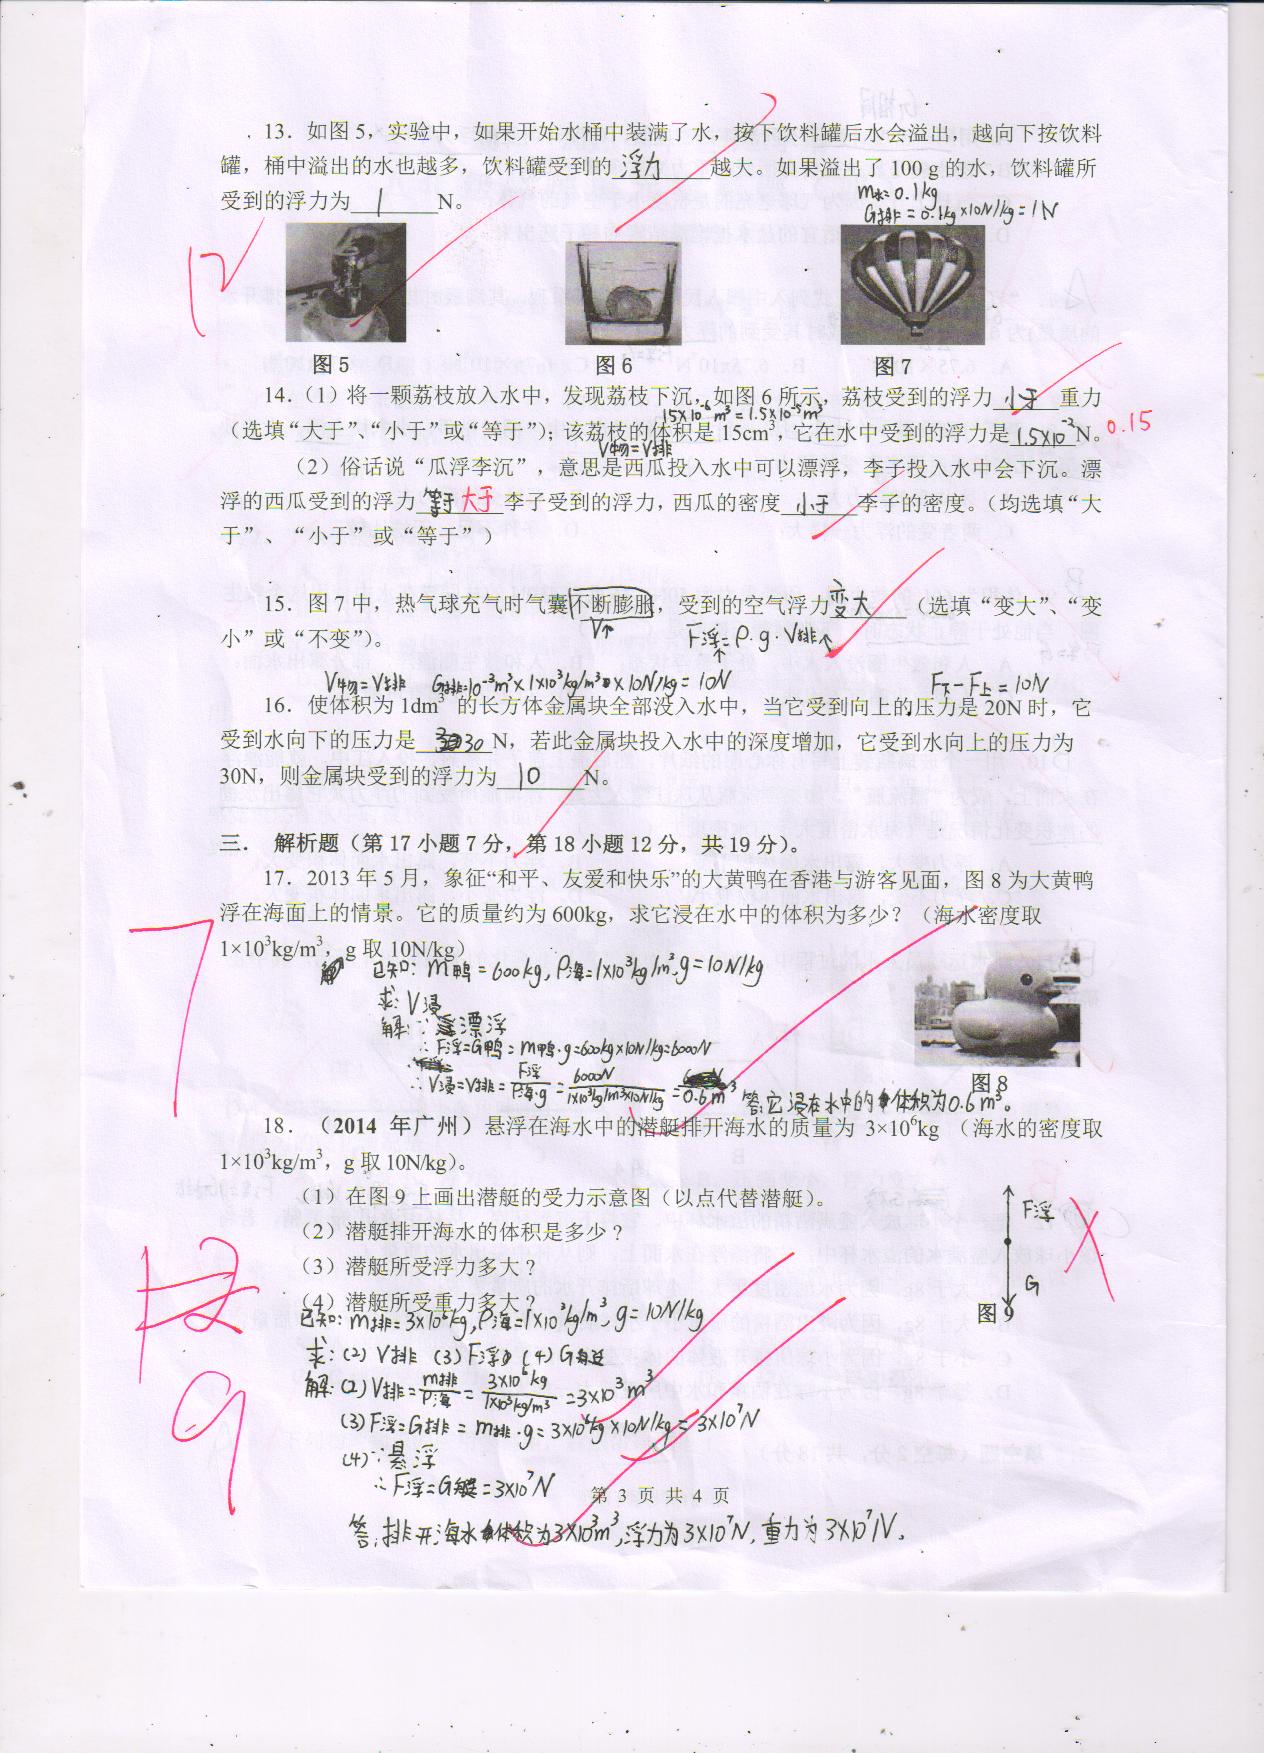 13．如图5，实验中，如果开始水桶中装满了水，按下饮料罐后水会溢出，越向下按饮料
罐，桶中溢出的水也越多，饮料罐受到的 浮力 越大。如果溢出了 100 g 的水，饮料罐所
m水=0.1kg
受到的浮力为 1 N。
G排=0.1kg×10N/kg=1N
12
图5
图6
图7
14．（1）将一颗荔枝放入水中，发现荔枝下沉，如图6所示，荔枝受到的浮力 小于 重力
15×10⁻⁶m³=1.5×10⁻⁵m³
（选填“大于”、“小于”或“等于”）；该荔枝的体积是15cm³，它在水中受到的浮力是 1.5×10⁻² N。 0.15
V物=V排
（2）俗话说“瓜浮李沉”，意思是西瓜投入水中可以漂浮，李子投入水中会下沉。漂
浮的西瓜受到的浮力 等于 大于 李子受到的浮力，西瓜的密度 小于 李子的密度。（均选填“大
于”、“小于”或“等于”）
15．图7中，热气球充气时气囊不断膨胀，受到的空气浮力 变大 （选填“变大”、“变
V↑
小”或“不变”）。
F浮=ρ·g·V排↑
V物=V排 G排=10⁻³m³×1×10³kg/m³×10N/kg=10N
F下-F上=10N
16．使体积为1dm³ 的长方体金属块全部没入水中，当它受到向上的压力是20N时，它
受到水向下的压力是 30 N，若此金属块投入水中的深度增加，它受到水向上的压力为
30N，则金属块受到的浮力为 10 N。
三． 解析题（第17小题7分，第18小题12分，共19分）。
17．2013年5月，象征“和平、友爱和快乐”的大黄鸭在香港与游客见面，图8为大黄鸭
浮在海面上的情景。它的质量约为600kg，求它浸在水中的体积为多少？（海水密度取
1×10³kg/m³，g取10N/kg）
7
已知：m鸭=600kg，ρ海=1×10³kg/m³，g=10N/kg
求：V浸
解：∵漂浮
∴F浮=G鸭=m鸭·g=600kg×10N/kg=6000N
∴V浸=V排=F浮/ρ海·g=6000N/1×10³kg/m³×10N/kg=0.6m³
图8
答：它浸在水中的体积为0.6m³。
18．（2014 年广州）悬浮在海水中的潜艇排开海水的质量为 3×10⁶kg （海水的密度取
1×10³kg/m³，g取10N/kg）。
（1）在图9上画出潜艇的受力示意图（以点代替潜艇）。
（2）潜艇排开海水的体积是多少？
（3）潜艇所受浮力多大？
（4）潜艇所受重力多大？
F浮
G
图9
9
已知：m排=3×10⁶kg，ρ海=1×10³kg/m³，g=10N/kg
求：(2) V排 (3) F浮 (4) G艇
解：(2) V排=m排/ρ海=3×10⁶kg/1×10³kg/m³=3×10³m³
(3) F浮=G排=m排·g=3×10⁶kg×10N/kg=3×10⁷N
(4)∵悬浮
∴F浮=G艇=3×10⁷N
第 3 页 共 4 页
答：排开海水体积为3×10³m³，浮力为3×10⁷N，重力为3×10⁷N。